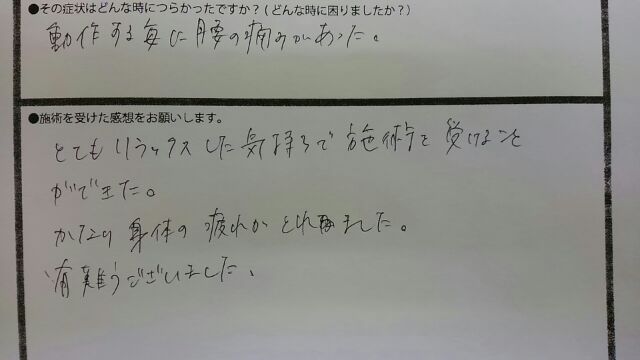 ●その症状はどんな時につらかったですか？(どんな時に困りましたか？)
動作する毎に腰の痛みがあった。
●施術を受けた感想をお願いします。
とてもリラックスした気持ちで施術を受けること
ができた。
かなり身体の疲れがとれました。
有難うございました。